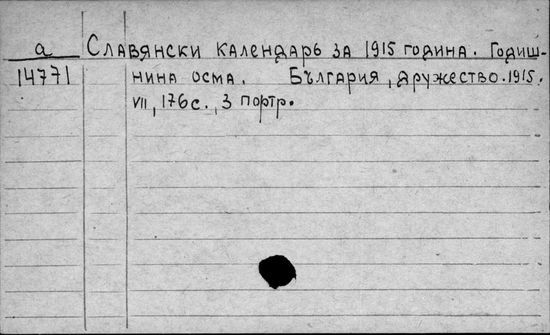 а Славянски календарь за 1915 година. Годиш-
14771 нина осма. България, дружество. 1915.
VII, 176 с., 3 портр.